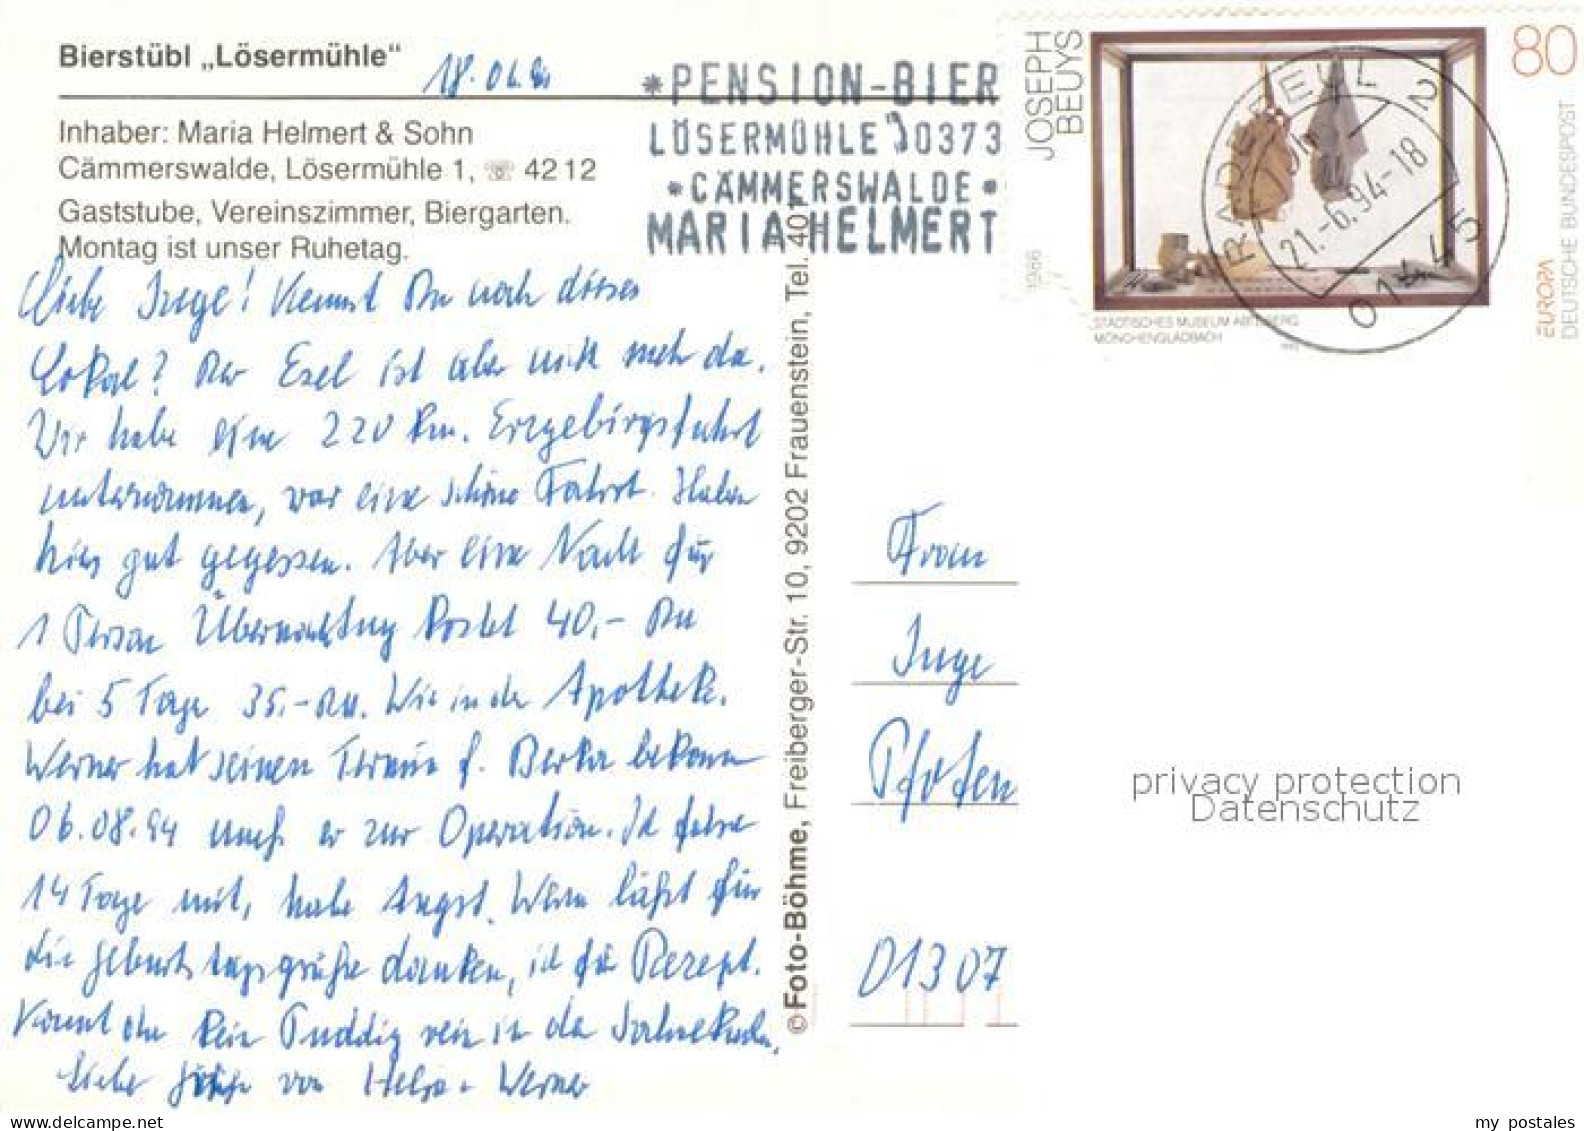 Bierstübl „Lösermühle“
18.06.94
Inhaber: Maria Helmert & Sohn
Cämmerswalde, Lösermühle 1, ☏ 42 12
Gaststube, Vereinszimmer, Biergarten.
Montag ist unser Ruhetag.
*PENSION-BIER
LÖSERMÜHLE 30373
*CÄMMERSWALDE*
MARIA HELMERT
JOSEPH
BEUYS
80
1986
STÄDTISCHES MUSEUM ABTEIBERG
MÖNCHENGLADBACH
EUROPA
DEUTSCHE BUNDESPOST
RADEBEUL 12
21.-6.94-18
01445
Liebe Inge! Kennst Du noch dieses
Lokal? Der Esel ist aber nicht mehr da.
Wir habe eine 220 km. Erzgebirgsfahrt
unternommen, war eine schöne Fahrt. Haben
hier gut gegessen. Aber eine Nacht für
1 Person Übernachtung kostet 40,- DM
bei 5 Tage 35,- DM. Wie in der Apotheke.
Werner hat seinen Termin f. Berka bekomm
06.08.94 muß er zur Operation. Ich fahre
14 Tage mit, habe Angst. Werner läßt für
die Geburtstagsgrüße danken, ich für Rezept.
Kommt denn kein Puddig rein in die
Liebe Grüße von Helga + Werner
© Foto-Böhme, Freiberger-Str. 10, 9202 Frauenstein, Tel. 401
Frau
Inge
Pfoten
01307
privacy protection
Datenschutz
my postales